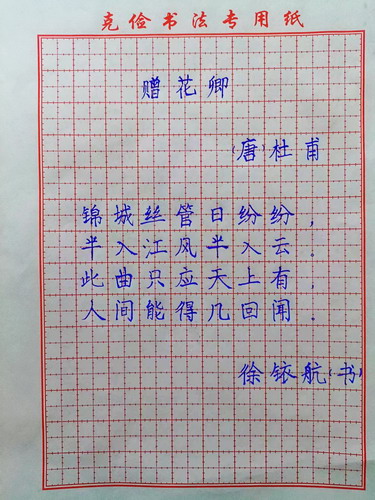 克俭书法专用纸
赠花卿
(唐)杜甫
锦城丝管日纷纷,
半入江风半入云.
此曲只应天上有,
人间能得几回闻.
徐铱航(书)